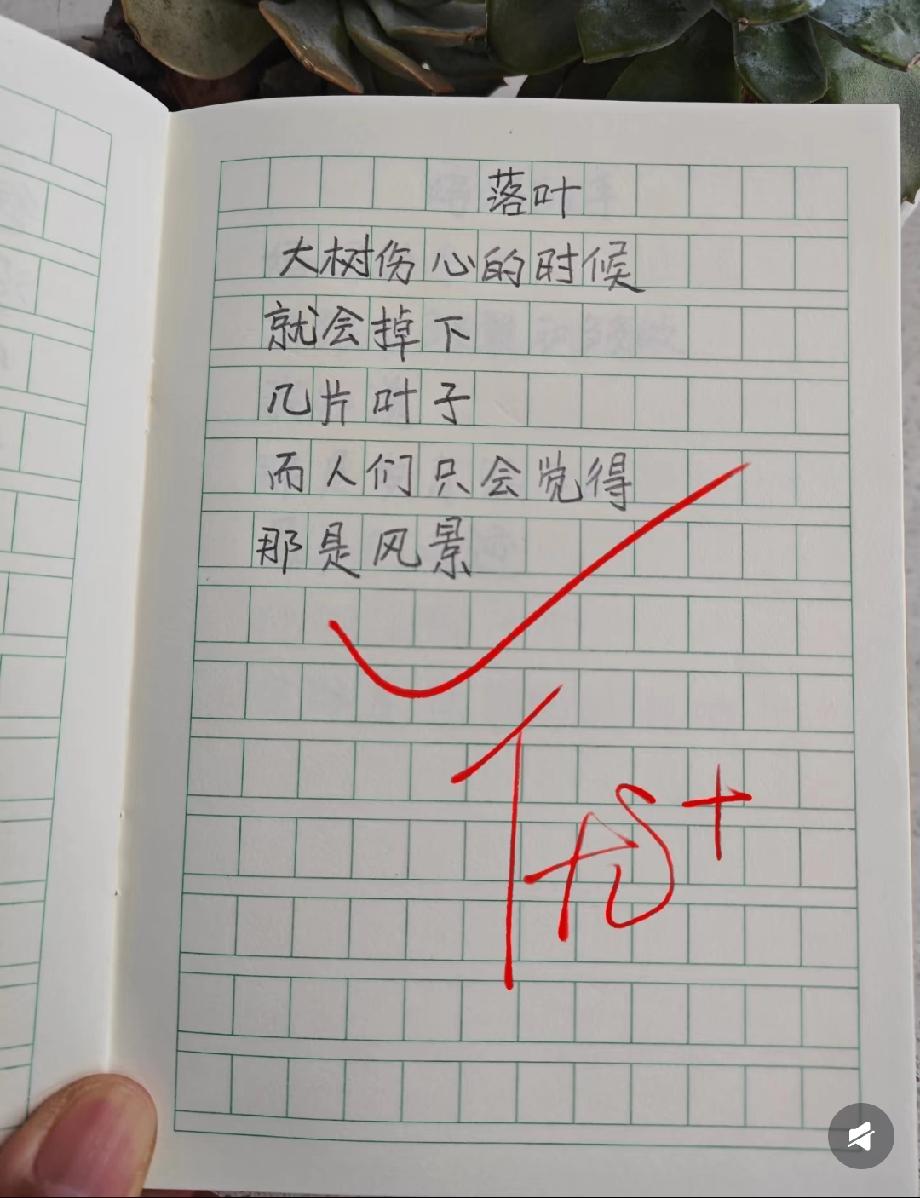 落叶
大树伤心的时候
就会掉下
几片叶子
而人们只会觉得
那是风景
优+